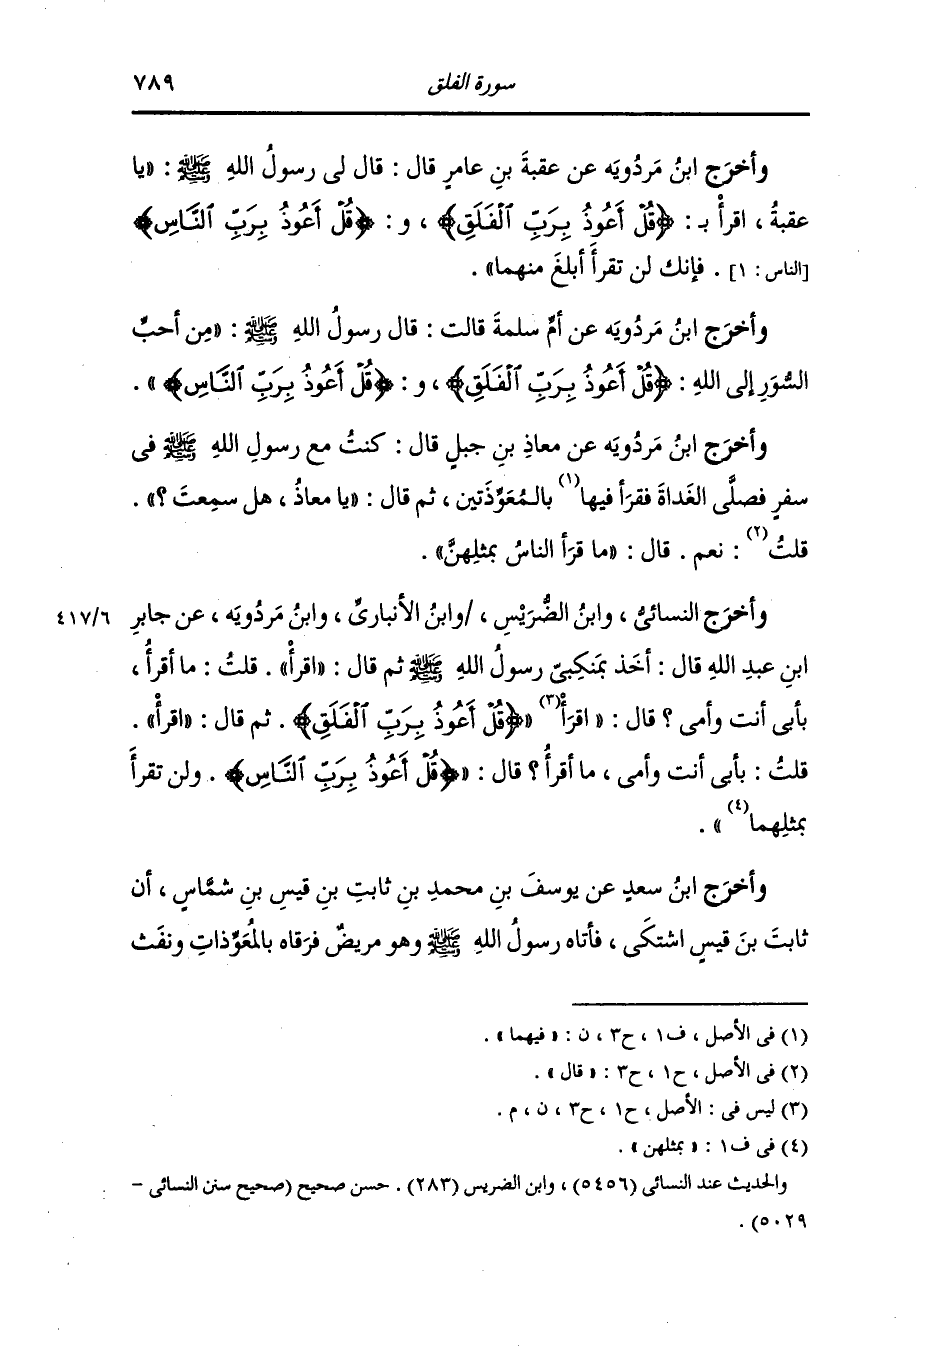 سورة الفلق ٧٨٩
وأخرَج ابنُ مَردُويَه عن عقبةَ بنِ عامرٍ قال : قال لى رسولُ اللهِ ﷺ : «يا
عقبةُ ، اقرأْ بـ : ﴿قُلْ أَعُوذُ بِرَبِّ ٱلْفَلَقِ﴾ ، و : ﴿قُلْ أَعُوذُ بِرَبِّ ٱلنَّاسِ﴾
[الناس : ١] . فإنك لن تقرأَ أبلغَ منهما» .
وأخرَج ابنُ مَردُويَه عن أمِّ سلمةَ قالت : قال رسولُ اللهِ ﷺ : «مِن أحبِّ
السُّوَرِ إلى اللهِ : ﴿قُلْ أَعُوذُ بِرَبِّ ٱلْفَلَقِ﴾ ، و : ﴿قُلْ أَعُوذُ بِرَبِّ ٱلنَّاسِ﴾» .
وأخرَج ابنُ مَردُويَه عن معاذِ بنِ جبلٍ قال : كنتُ مع رسولِ اللهِ ﷺ فى
سفرٍ فصلَّى الغَداةَ فقرَأ فيها(١) بالمُعَوِّذَتين ، ثم قال : «يا معاذُ ، هل سمِعتَ ؟» .
قلتُ(٢) : نعم . قال : «ما قرَأ الناسُ بمثلِهنَّ» .
وأخرَج النسائىُّ ، وابنُ الضُّرَيْسِ ، /وابنُ الأنبارىِّ ، وابنُ مَردُويَه ، عن جابرِ ٤١٧/٦
ابنِ عبدِ اللهِ قال : أخَذ بمَنكِبىّ رسولُ اللهِ ﷺ ثم قال : «اقرأْ» . قلتُ : ما أقرأُ ،
بأبى أنت وأمى ؟ قال : « اقرَأْ(٣) «﴿قُلْ أَعُوذُ بِرَبِّ ٱلْفَلَقِ﴾ . ثم قال : «اقرأْ» .
قلتُ : بأبى أنت وأمى ، ما أقرأُ ؟ قال : «﴿قُلْ أَعُوذُ بِرَبِّ ٱلنَّاسِ﴾ . ولن تقرأَ
بمثلِهما(٤)» .
وأخرَج ابنُ سعدٍ عن يوسفَ بنِ محمدِ بنِ ثابتِ بنِ قيسِ بنِ شمَّاسٍ ، أن
ثابتَ بنَ قيسٍ اشتكَى ، فأتاه رسولُ اللهِ ﷺ وهو مريضٌ فرَقاه بالمُعَوِّذاتِ ونفَث
(١) فى الأصل ، ف١ ، ح٣ ، ن : « فيهما » .
(٢) فى الأصل ، ح١ ، ح٣ : « قال » .
(٣) ليس فى : الأصل ، ح١ ، ح٣ ، ن ، م .
(٤) فى ف١ : « بمثلهن » .
والحديث عند النسائى (٥٤٥٦) ، وابن الضريس (٢٨٣) . حسن صحيح (صحيح سنن النسائى -
٥٠٢٩) .